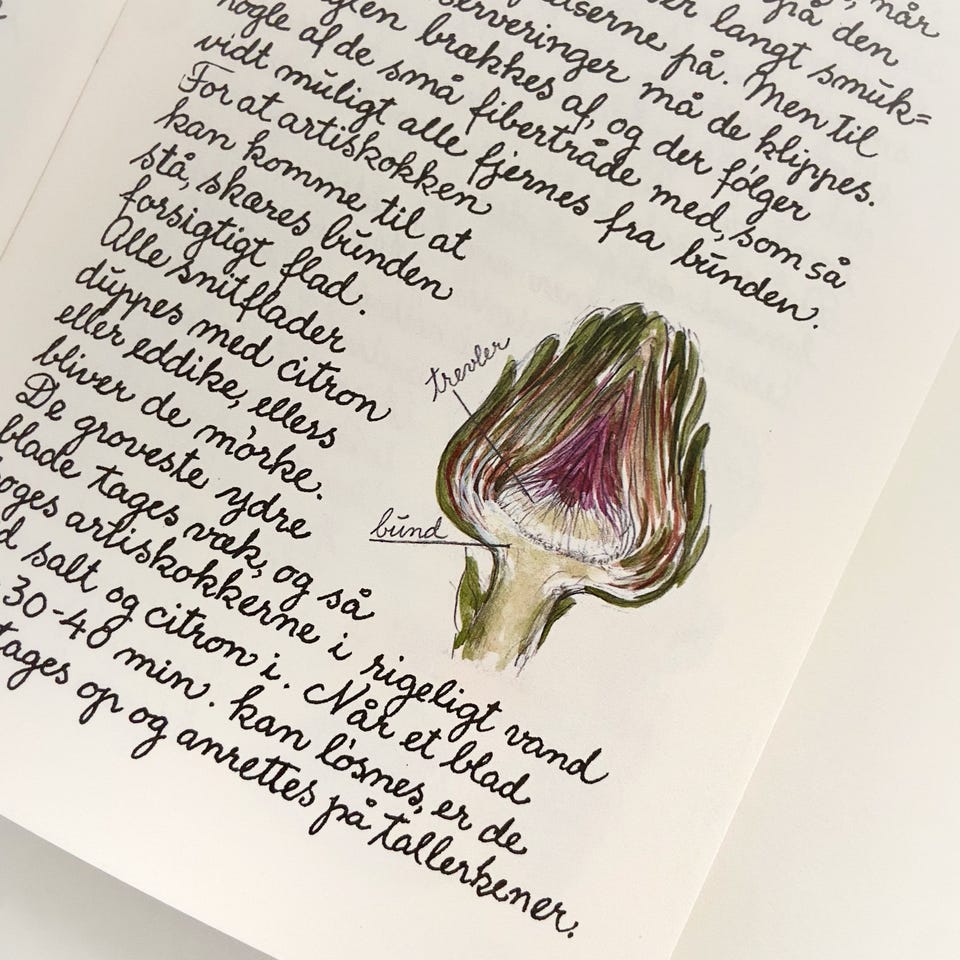 når
på den
langt smuk=
på. Men til
må de klippes.
brækkes af, og der følger
nogle af de små fibertråde med, som så
vidt muligt alle fjernes fra bunden.
For at artiskokken
kan komme til at
stå, skæres bunden
forsigtigt flad.
Alle snitflader
duppes med citron
eller eddike, ellers
bliver de mørke.
De groveste ydre
blade tages væk, og så
koges artiskokkerne i rigeligt vand
salt og citron i. Når et blad
30-40 min. kan løsnes, er de
tages op og anrettes på tallerkener.
trevler
bund